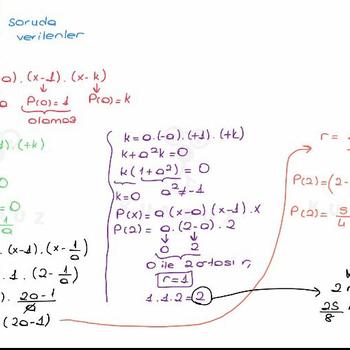 soruda
verilenler
-a).(x-1).(x-k)
P(0)=1 P(0)=k
olamaz
1).(+k)
=0
0
=0
1/a
.(x-1).(x-1/a)
.1.(2-1/a)
. 2a-1/a
(2a-1)
k=a.(-a).(+1).(+k)
k+a²k=0
k(1+a²)=0
k=0 a²≠-1
P(x)=a(x-a)(x-1).x
P(2)=a.(2-a).2
0 2
0 ile 2 ortası r,
r=1
1.1.2=2
r=
P(2)=(2-
P(2)=
2
25/8